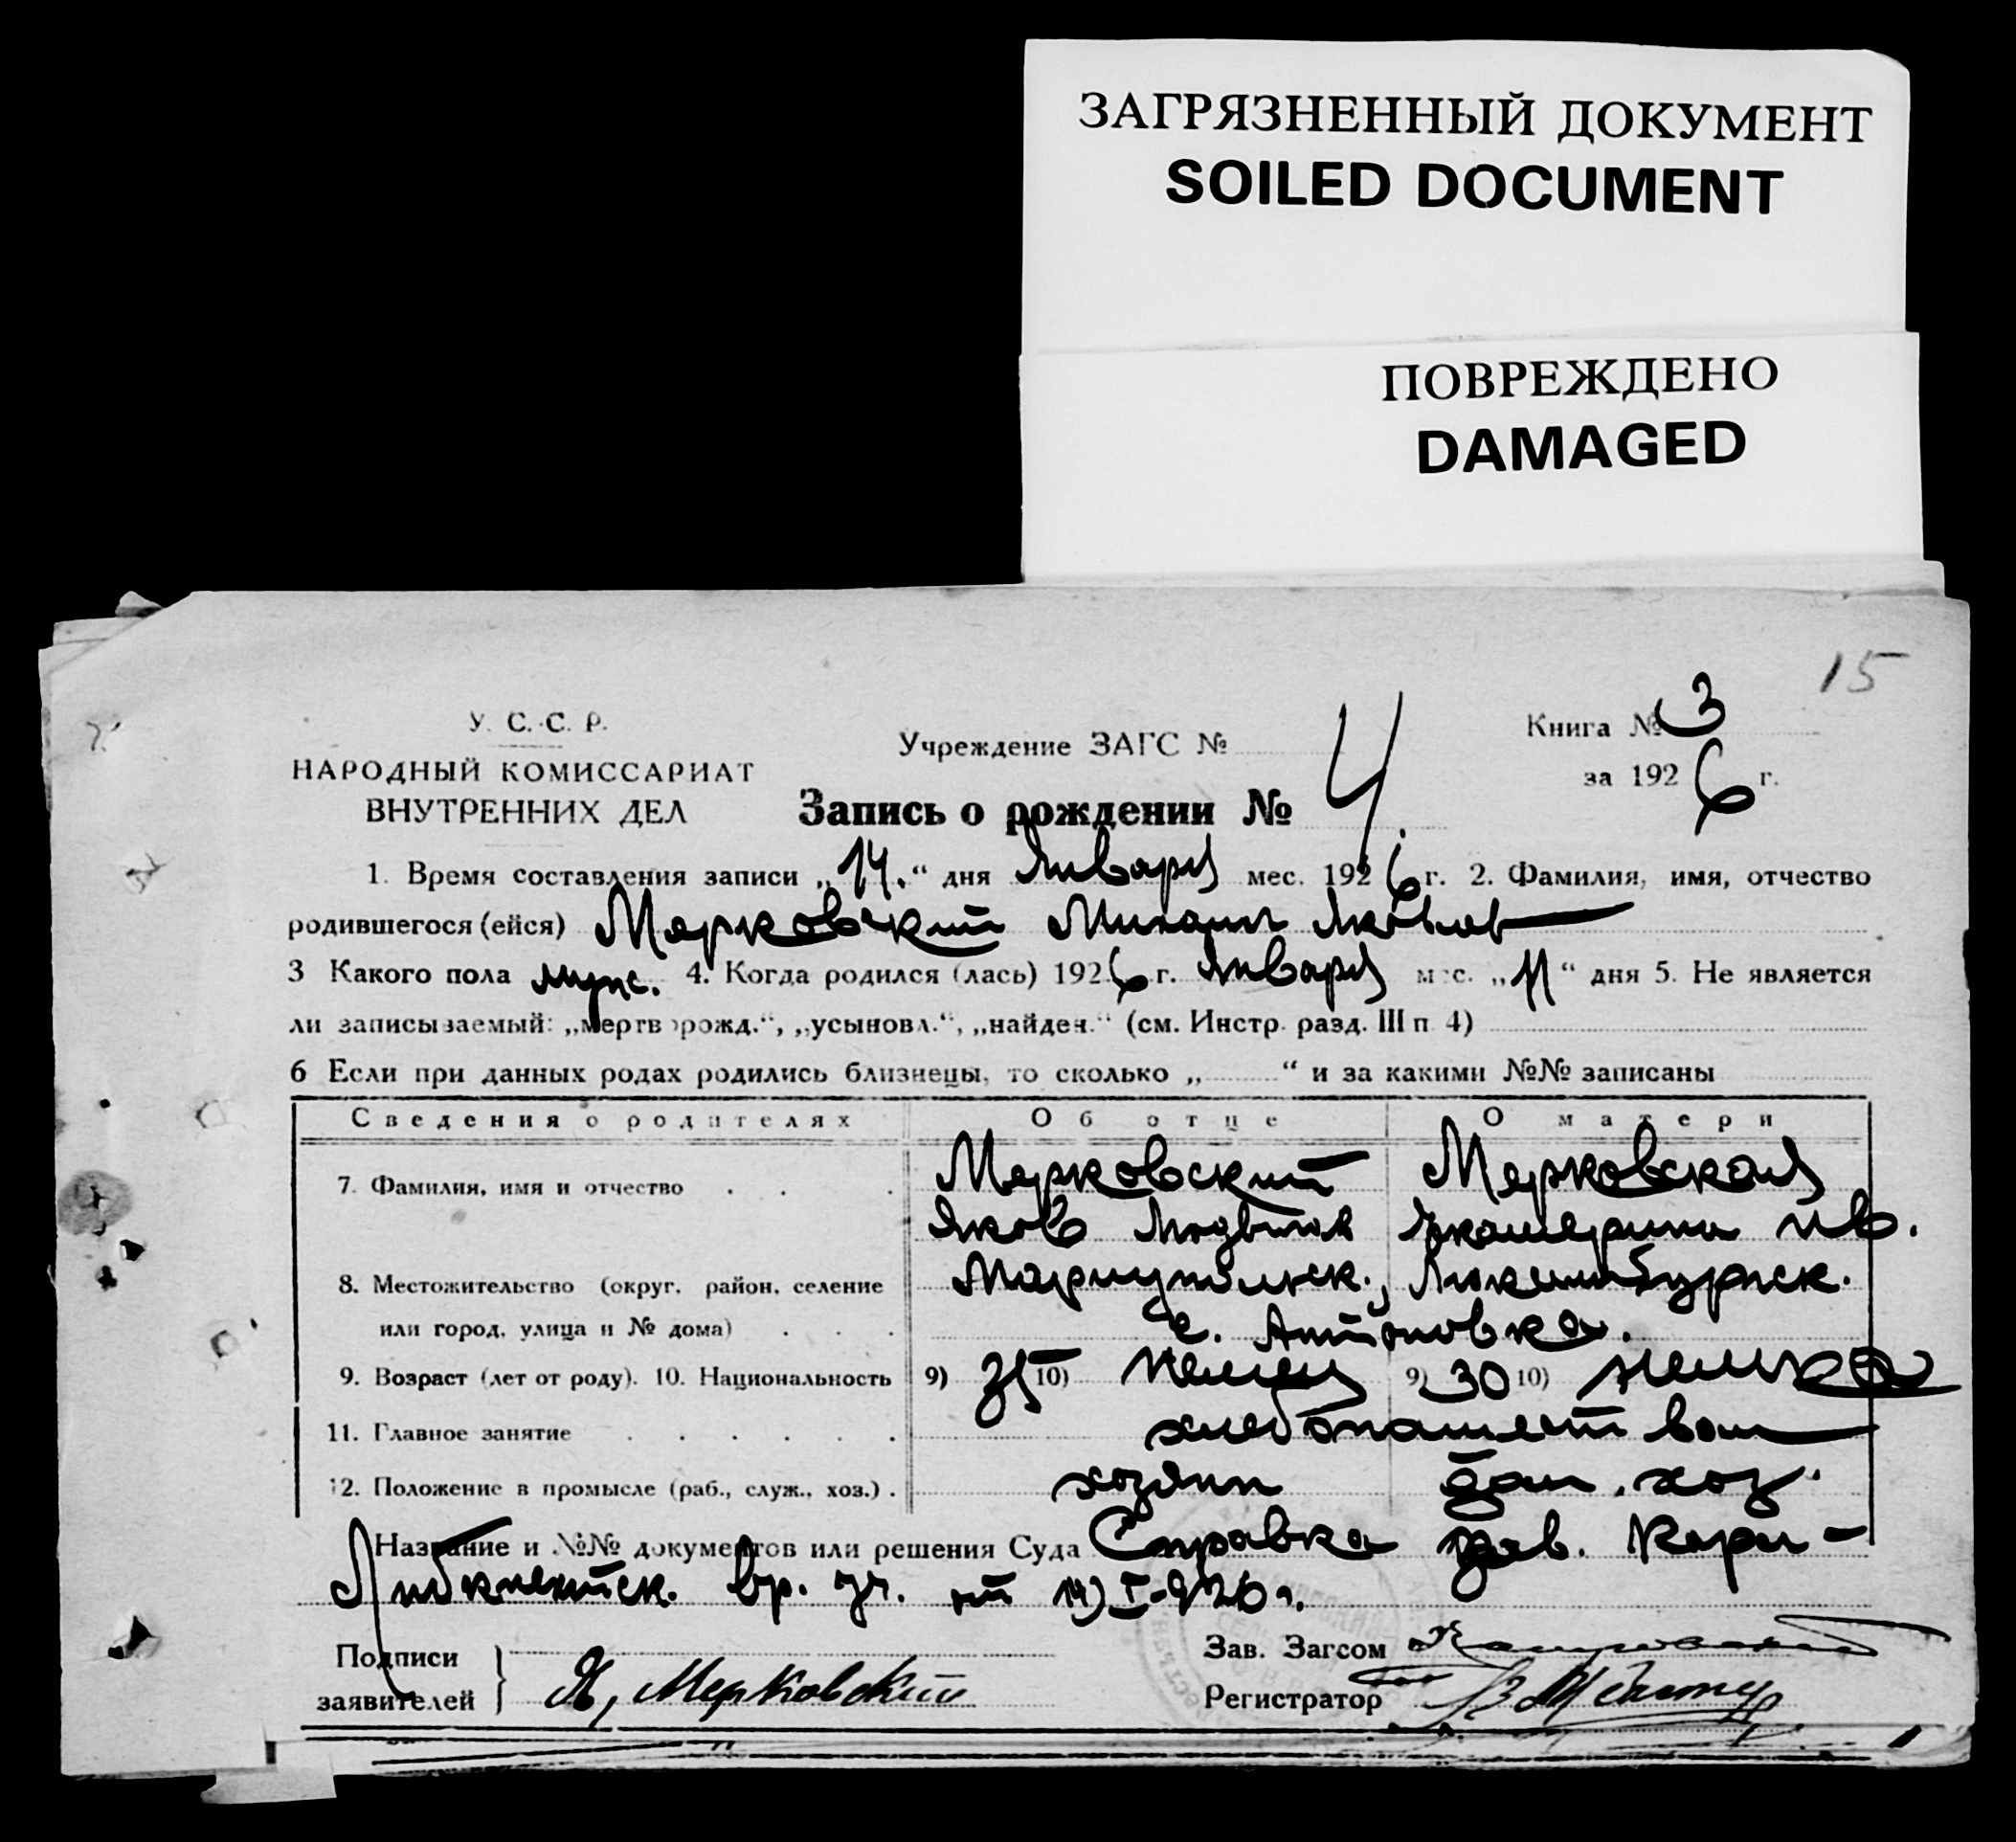 ЗАГРЯЗНЕННЫЙ ДОКУМЕНТ
SOILED DOCUMENT
ПОВРЕЖДЕНО
DAMAGED
15
У. С. С. Р.
НАРОДНЫЙ КОМИССАРИАТ
ВНУТРЕННИХ ДЕЛ
Учреждение ЗАГС №
Книга № 3
за 1926 г.
Запись о рождении № 4.
1. Время составления записи „14.“ дня Января мес. 1926 г. 2. Фамилия, имя, отчество
родившегося (ейся) Мерковский Михаил Яковлев
3 Какого пола муж. 4. Когда родился (лась) 1926 г. Января мес. „11“ дня 5. Не является
ли записываемый: „мертворожд.“, „усыновл.“, „найден.“ (см. Инстр. разд. III п. 4)
6 Если при данных родах родились близнецы, то сколько „ “ и за какими №№ записаны
Сведения о родителях Об отце О матери
7. Фамилия, имя и отчество Мерковский Мерковская
Яков Людвигов Екатерина Ив.
8. Местожительство (округ, район, селение Мариупольск., Люксембургск.
или город, улица и № дома) с. Антоновка.
9. Возраст (лет от роду). 10. Национальность 9) 35 10) Немец 9) 30 10) немка
11. Главное занятие хлебопашество
12. Положение в промысле (раб., служ., хоз.) хозяин дом. хоз.
Название и №№ документов или решения Суда Справка зав. Карл-
Либкнехтск. вр. уч. от 14) I-926 г.
Подписи
заявителей } Я, Мерковский
Зав. Загсом
Регистратор